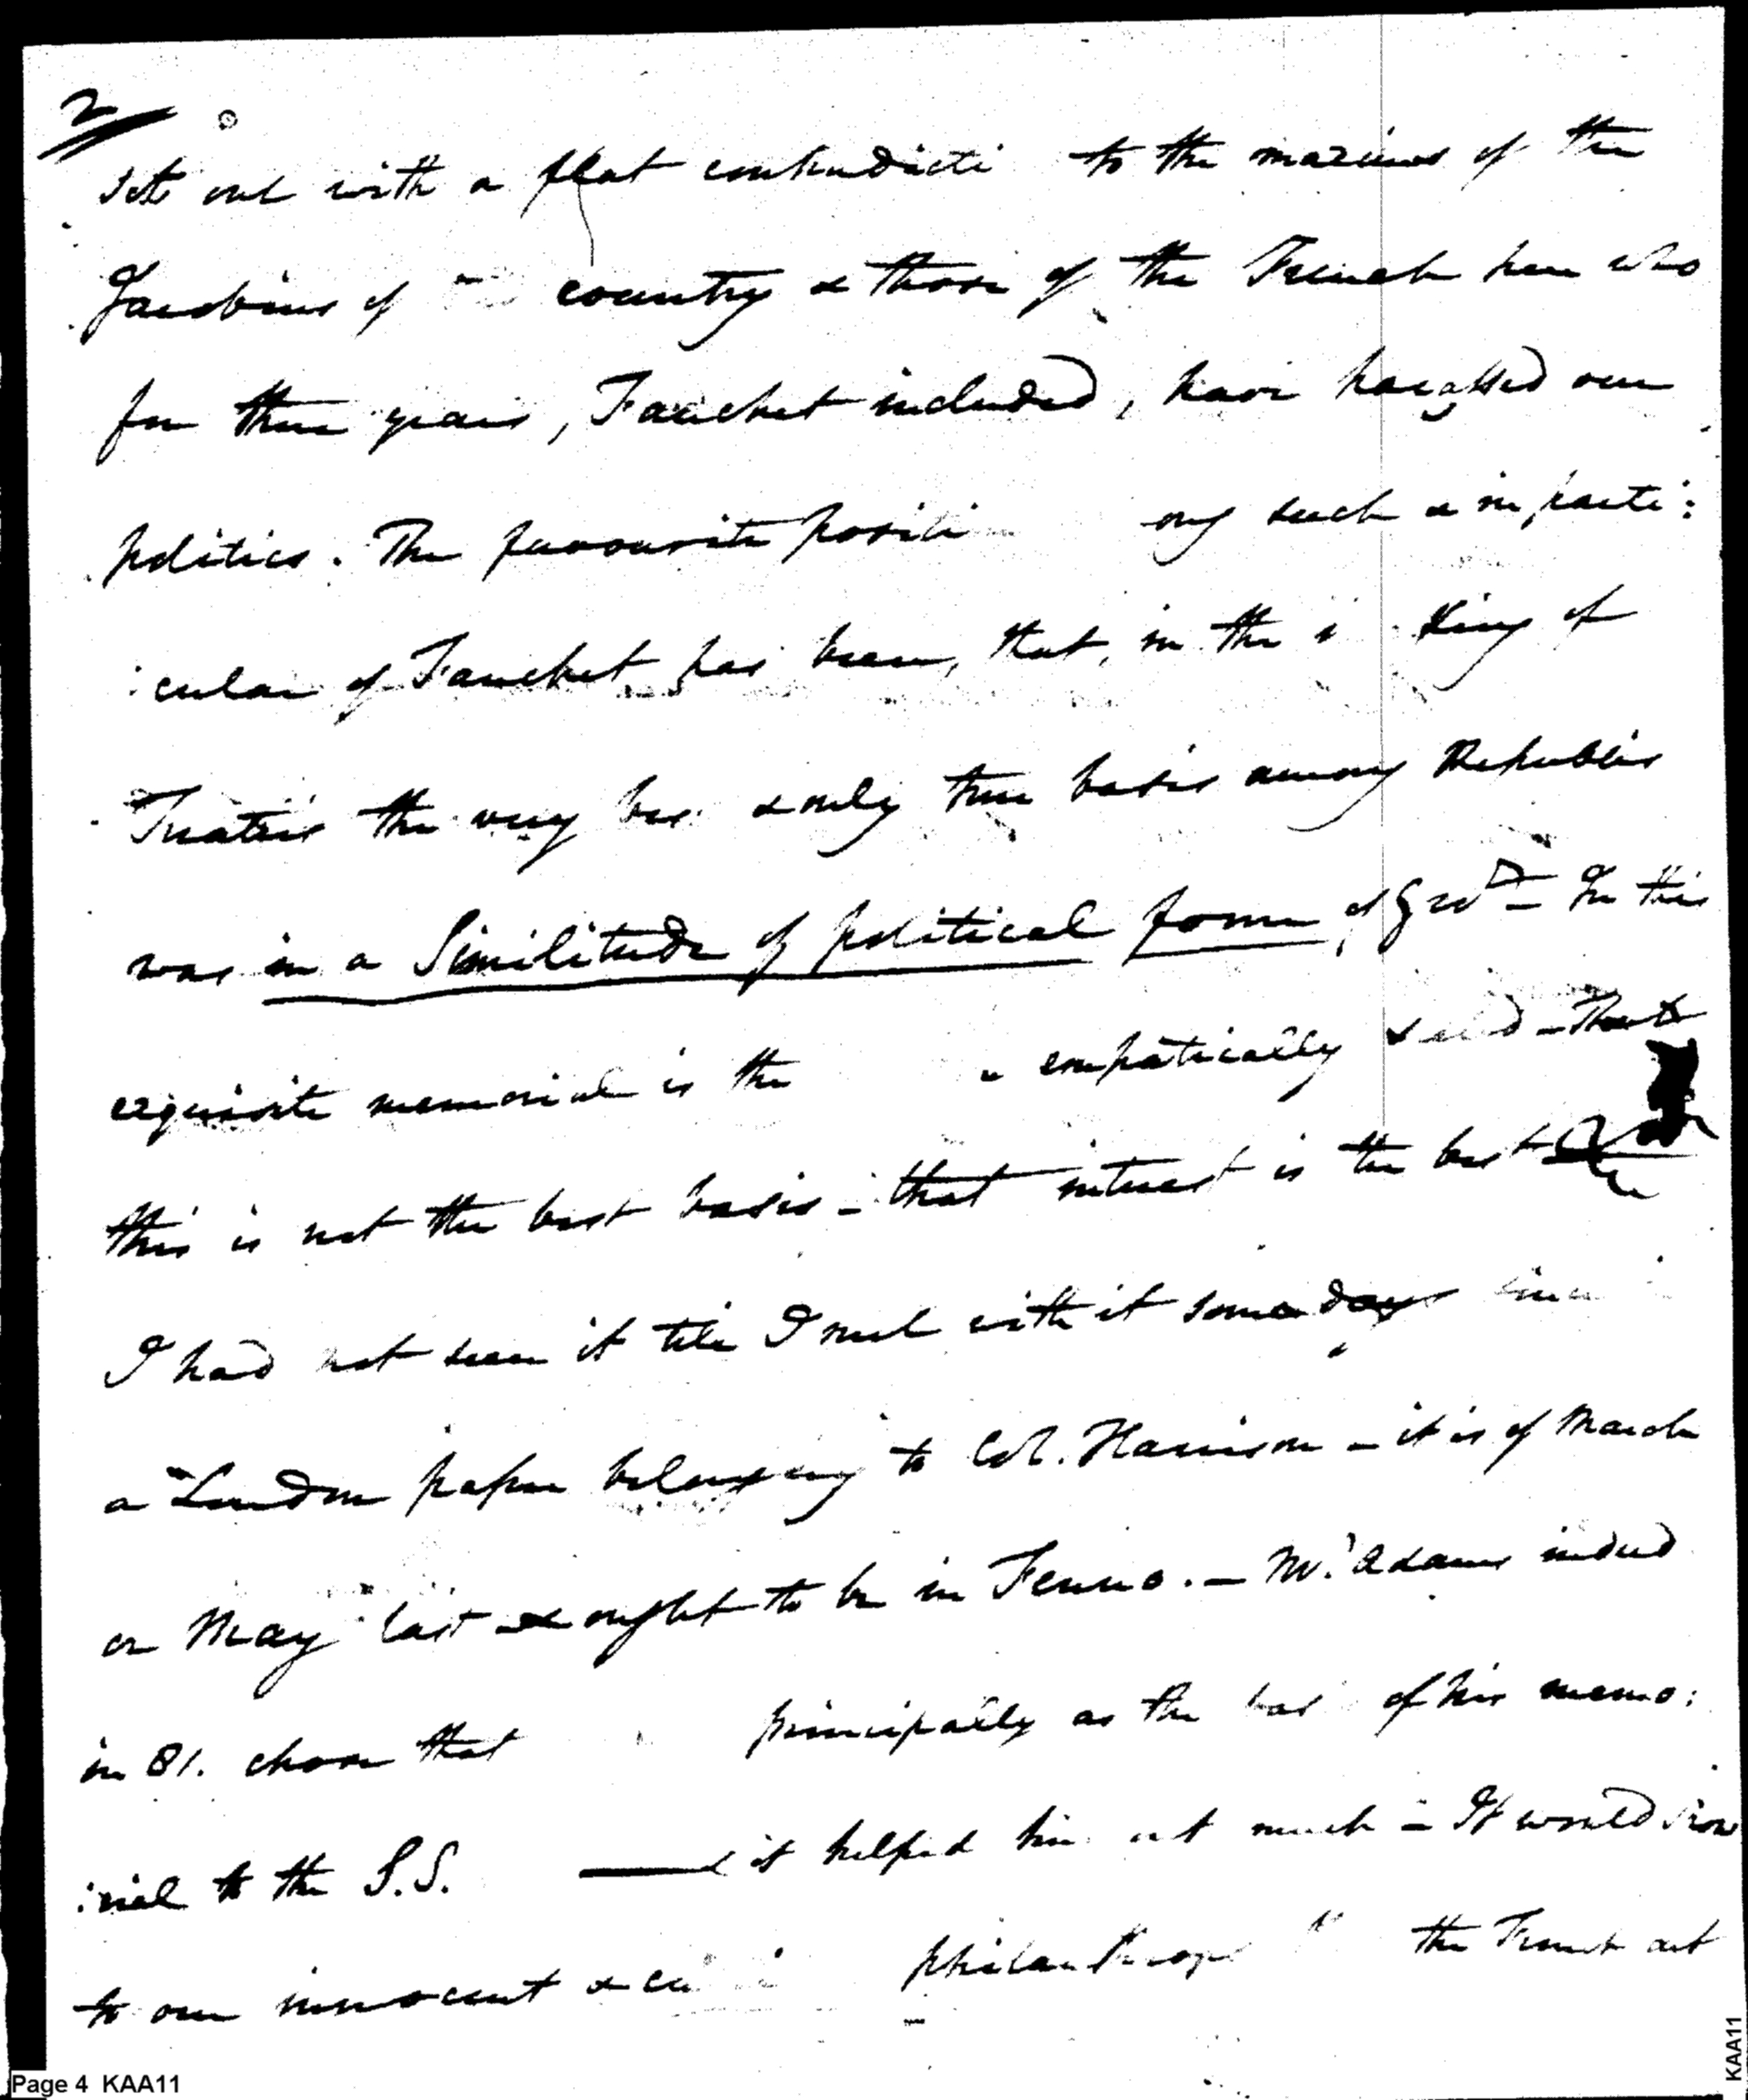 2
sets out with a flat contradicti to the maxims of the
Jacobins of country & those of the French here who
for three years, Fauchet included, have harassed our
politics. The favourite positi ong such & in parti:
:cular of Fauchet has been, that, in the king of
Treaties the very bes & only true basis among Republics
was in a Similitude of political forms of Govt - In this
exquisite memorial is the empatically said - That
this is not the best basis - that interest is the best
I had not seen it till I met with it some days since
a London paper belonging to Col. Harrison - it is of March
or May last & ought to be in Fenno. - Mr. Adams indeed
in 81. chose that principally as the bas of his memo:
:rial to the S.S. & it helped him out much - It would
to our innocent & philanthrop the French
Page 4 KAA11
KAA11